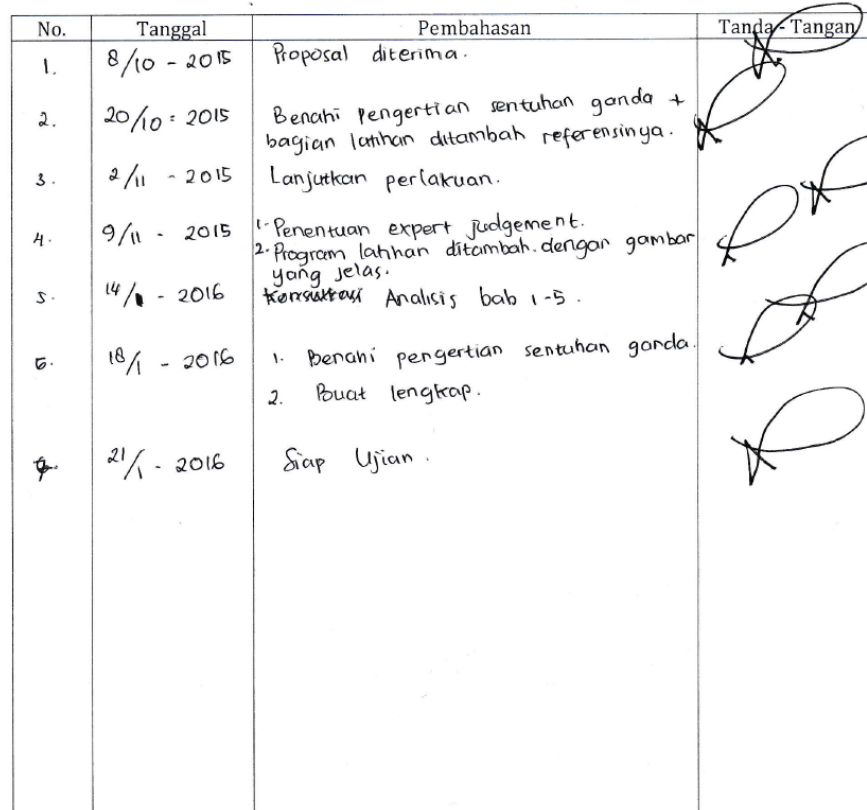 No. Tanggal Pembahasan Tanda - Tangan
1. 8/10 - 2015 Proposal diterima.
2. 20/10 - 2015 Benahi Pengertian sentuhan ganda +
bagian latihan ditambah referensinya.
3. 2/11 - 2015 Lanjutkan perlakuan.
4. 9/11 - 2015 1. Penentuan expert judgement.
2. Program latihan ditambah dengan gambar
yang jelas.
5. 14/1 - 2016 Konsultasi Analisis bab 1-5.
6. 18/1 - 2016 1. Benahi pengertian sentuhan ganda.
2. Buat lengkap.
7. 21/1 - 2016 Siap Ujian.